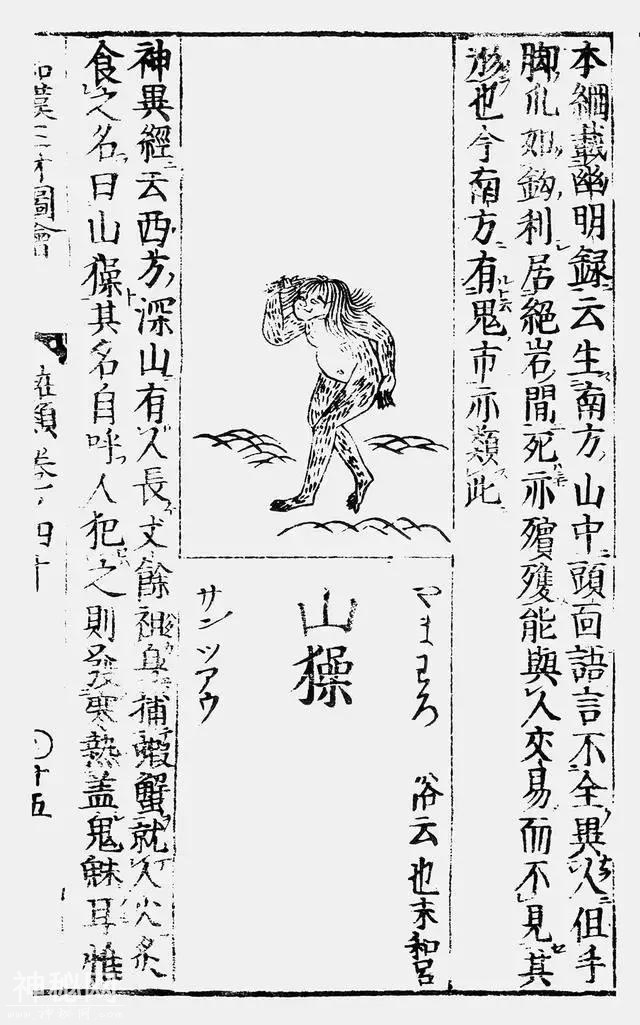 本綱載幽明録云生南方山中頭面語言不全異人但手
脚爪如鈎利居絶岩間死亦殯殮能與人交易而不見其
形也今南方有鬼市亦類此
やまわろ
俗云也末和呂
山𤢖
サンツアウ
神異經云西方深山有人長丈餘袒身捕蝦蟹就人火炙
食之名曰山𤢖其名自呼人犯之則發寒熱盖鬼魅耳惟
和漢三才圖會
類卷ノ四十
〇十五
神秘网